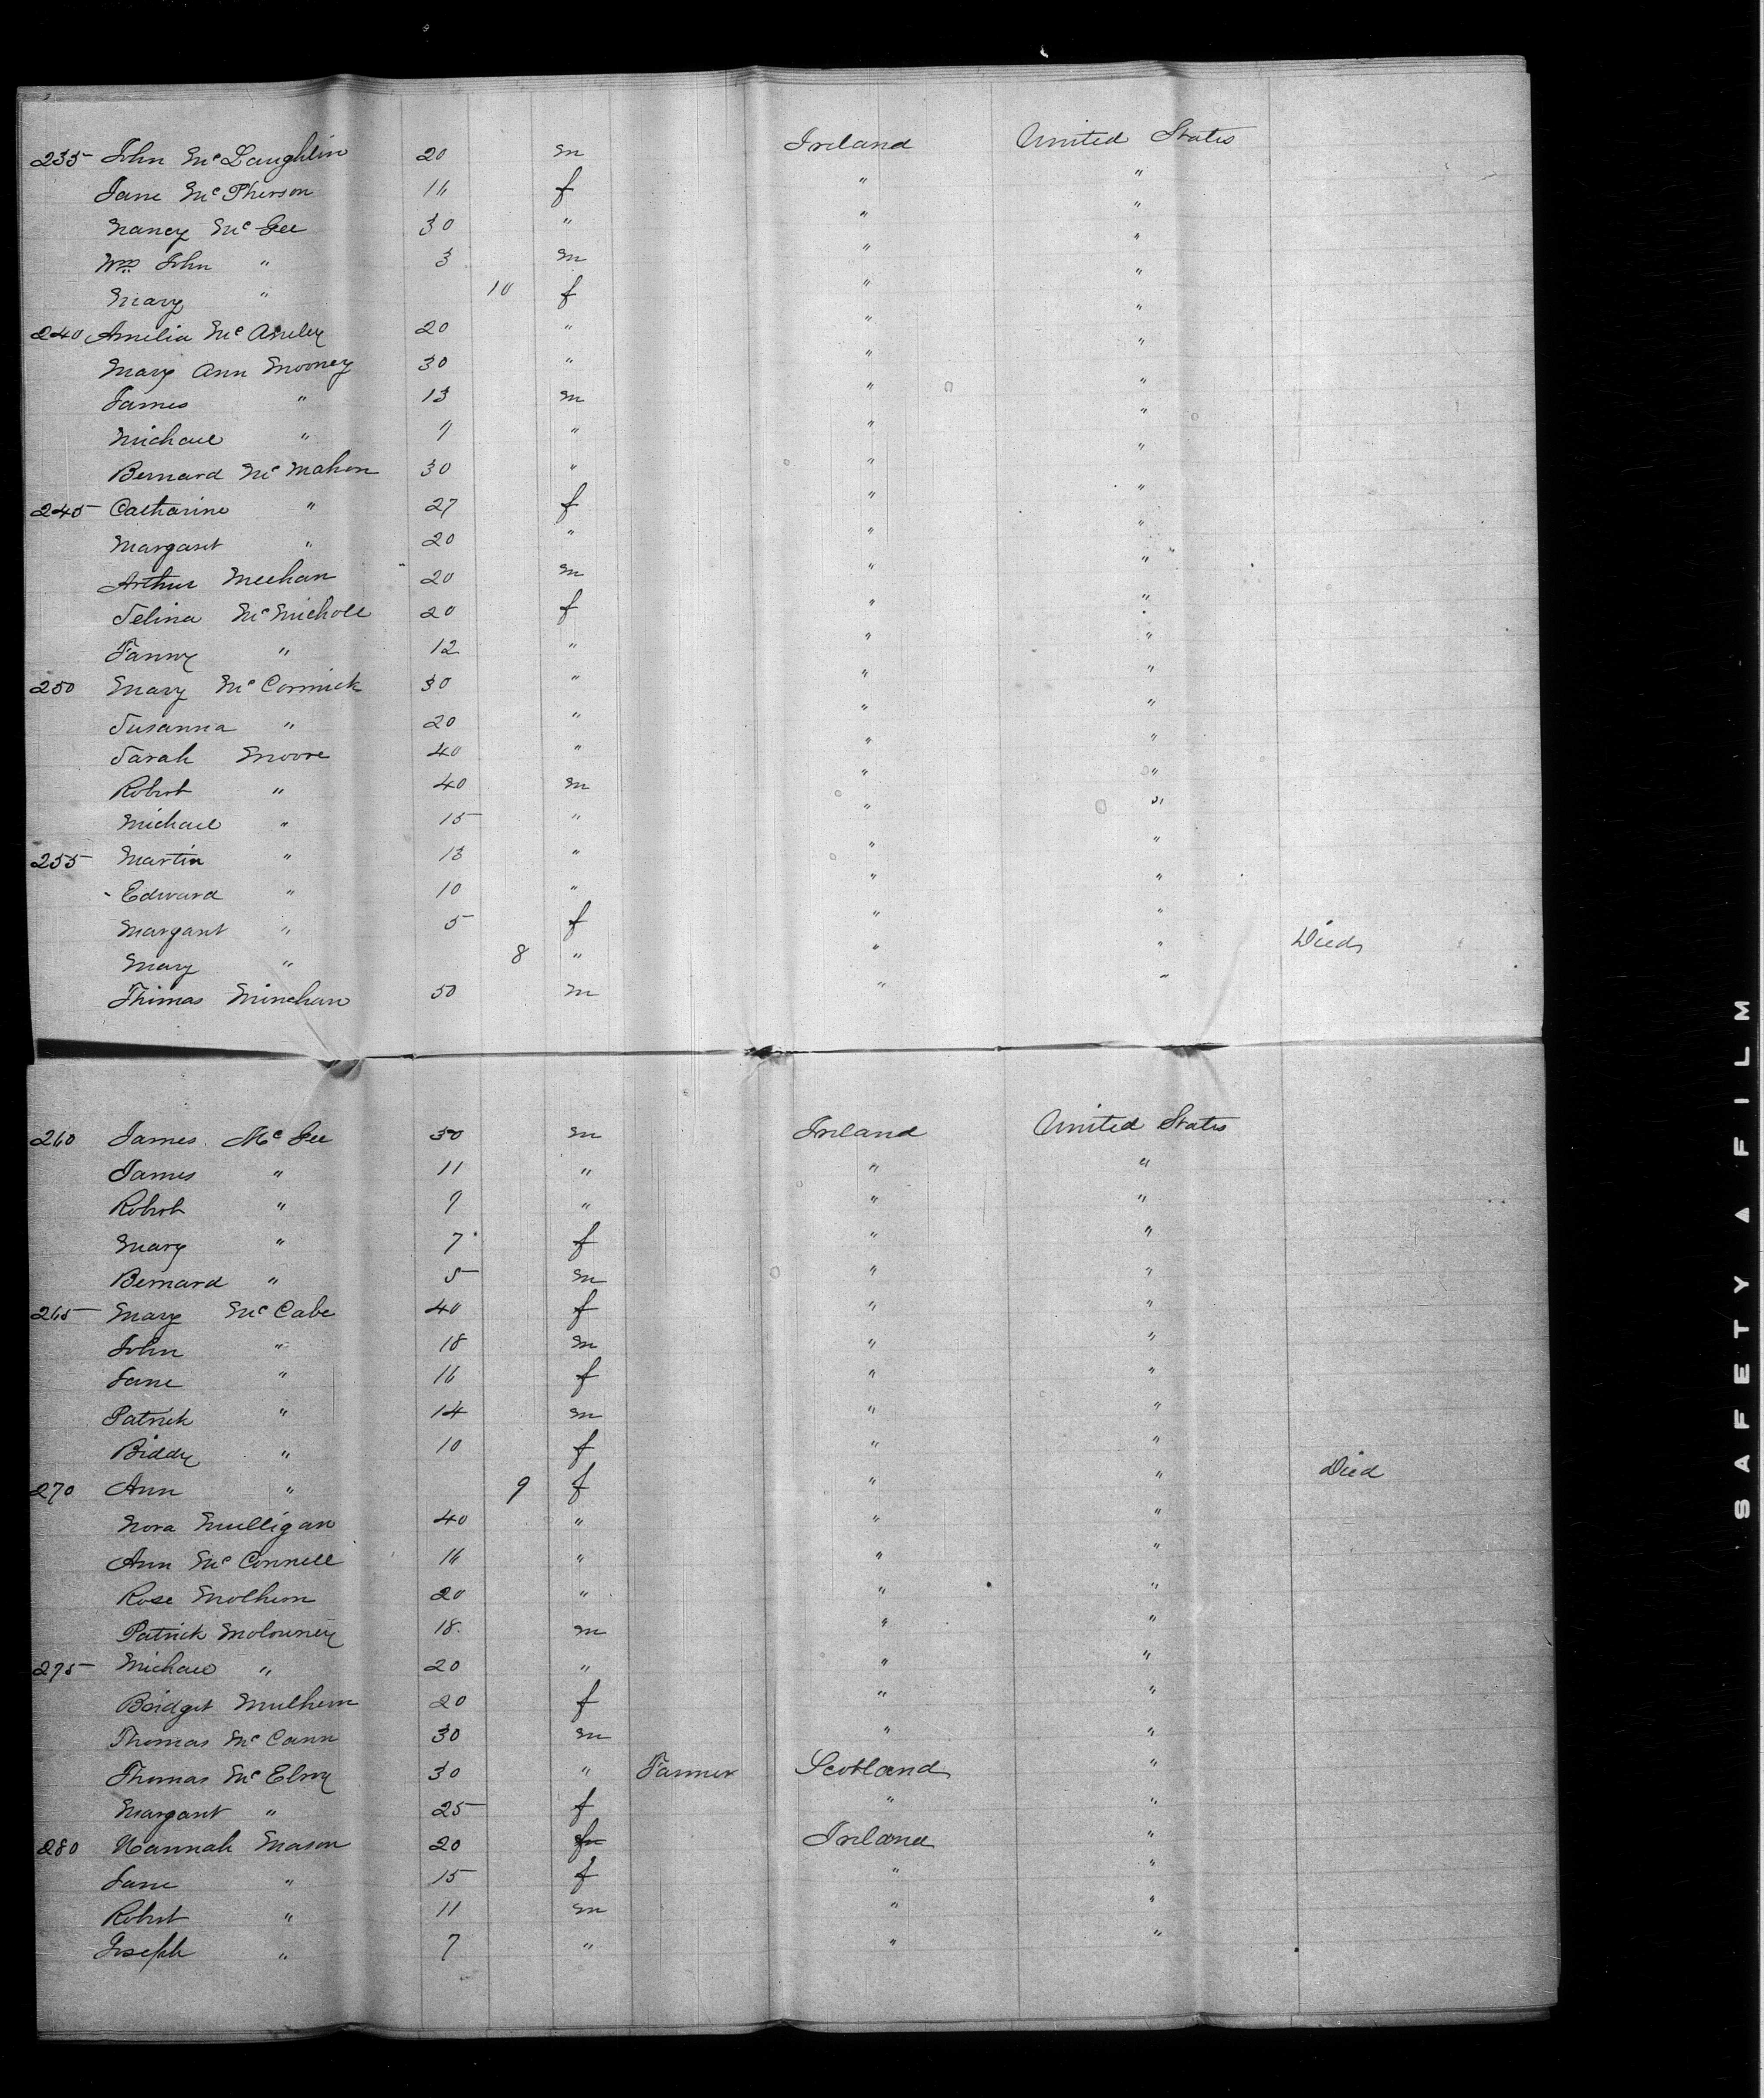 235 John McLaughlin 20 m Ireland United States
Jane McPherson 16 f " "
Nancy McGee 30 " " "
Wm John " 3 m " "
Mary " 10 f " "
240 Amelia McAnulty 20 " " "
Mary Ann Mooney 30 " " "
James " 13 m " "
Michael " 9 " " "
Bernard McMahon 30 " " "
245 Catharine " 27 f " "
Margaret " 20 " " "
Arthur Meehan 20 m " "
Selina McNicholl 20 f " "
Fanny " 12 " " "
250 Mary McCormick 30 " " "
Susanna " 20 " " "
Sarah Moore 40 " " "
Robert " 40 m " "
Michael " 15 " " "
255 Martin " 13 " " "
Edward " 10 " " "
Margaret " 5 f " "
Mary " 8 " " " Died
Thomas Minehan 50 m " "
260 James McGee 30 m Ireland United States
James " 11 " " "
Robert " 9 " " "
Mary " 7 f " "
Bernard " 5 m " "
265 Mary McCabe 40 f " "
John " 18 m " "
Jane " 16 f " "
Patrick " 14 m " "
Biddy " 10 f " "
270 Ann " 9 f " " Died
Nora Mulligan 40 " " "
Ann McConnell 16 " " "
Rose Molhern 20 " " "
Patrick Molowney 18 m " "
275 Michael " 20 " " "
Bridget Mulhern 20 f " "
Thomas McCann 30 m " "
Thomas McElroy 30 " Farmer Scotland "
Margaret " 25 f " "
280 Hannah Mason 20 Ireland "
Jane " 15 f " "
Robert " 11 m " "
Joseph " 7 " " "
SAFETY ▲ FILM